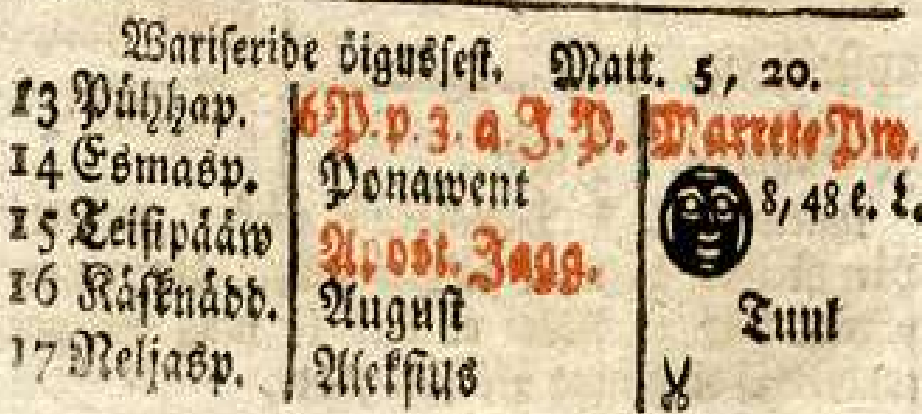 Wariseride öigussest. Matt. 5, 20.
13 Pühhap. 6 P. p. 3. a. J. P. Marrete Pw.
14 Esmasp. Ponawent 8, 48 e. L.
15 Teisipääw Apost. Jagg.
16 Käsknädd. August Tuul
17 Neljasp. Aleksius